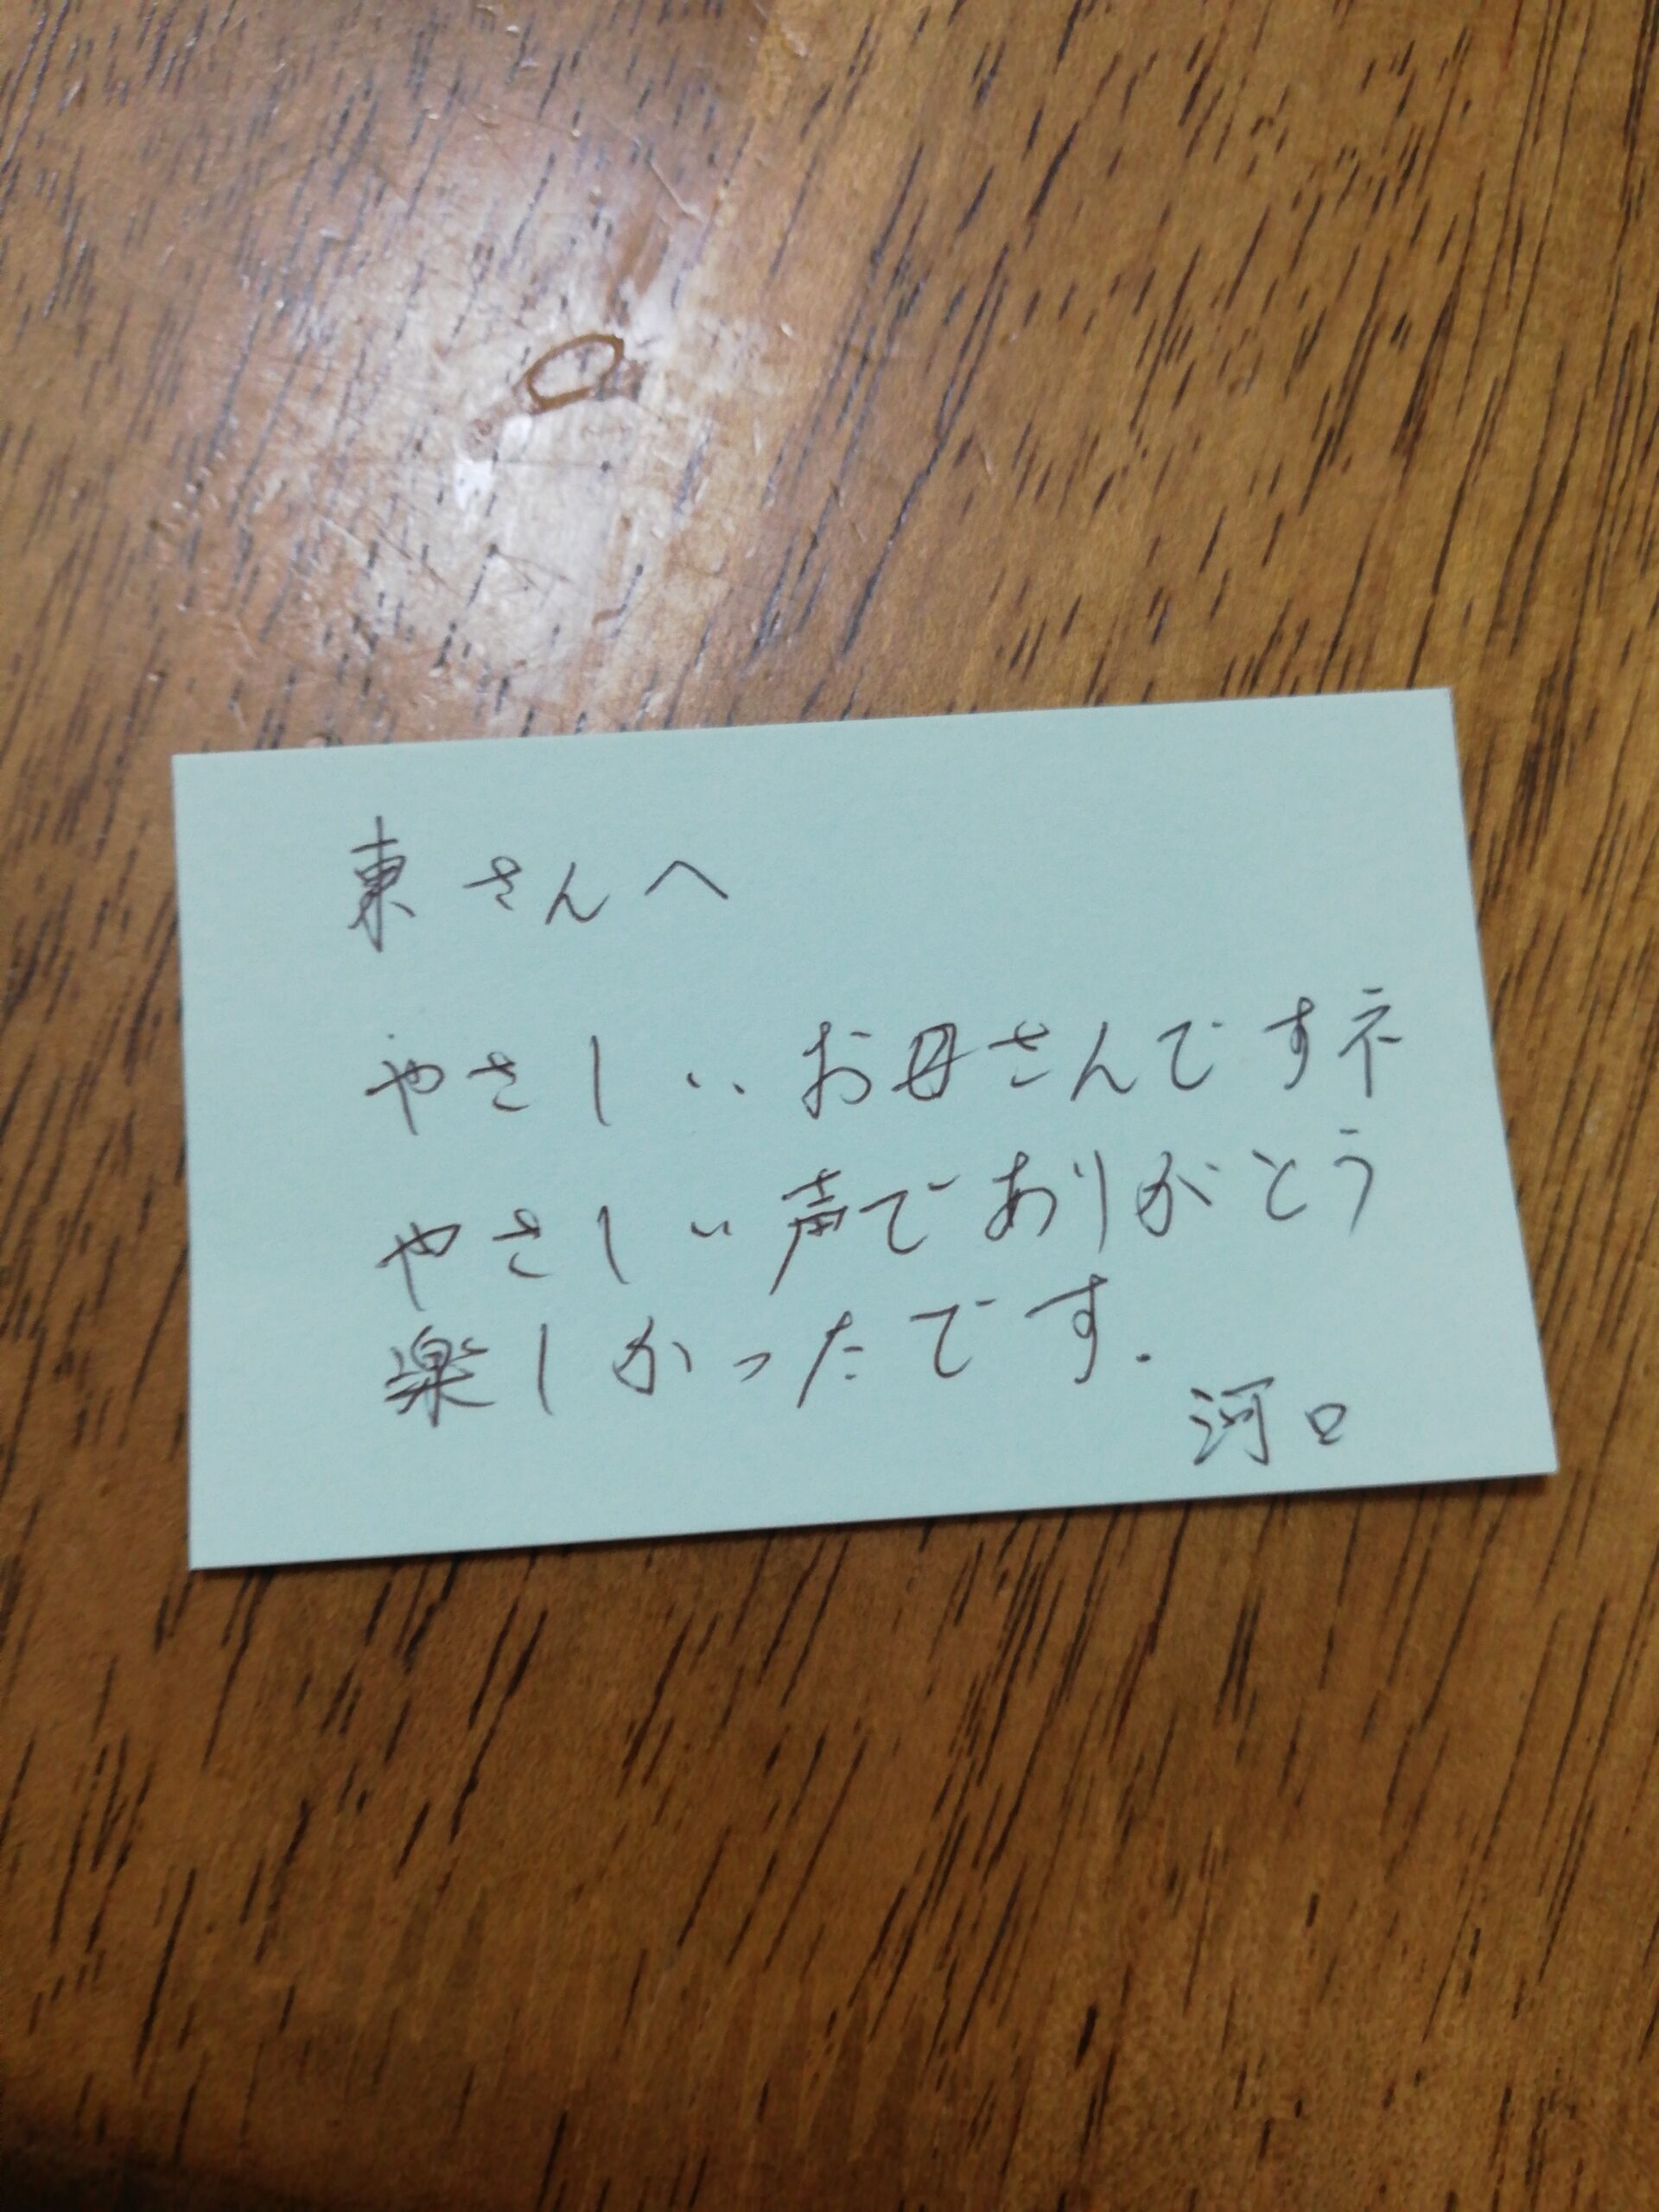 東さんへ
やさしいお母さんですネ
やさしい声でありがとう
楽しかったです.
河口